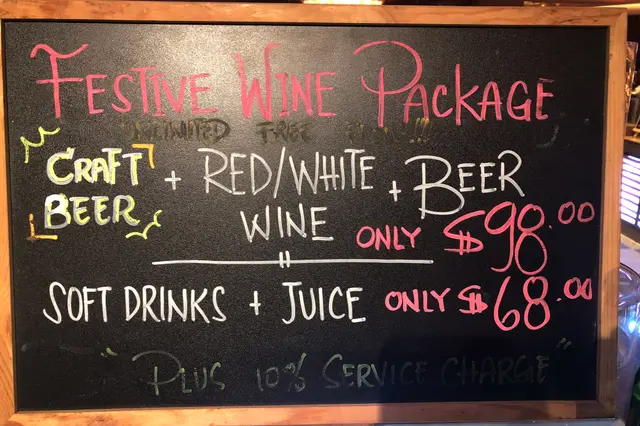 FESTIVE WINE PACKAGE
UNLIMITED FREE
CRAFT BEER + RED/WHITE WINE + BEER
ONLY $98.00
SOFT DRINKS + JUICE ONLY $68.00
"PLUS 10% SERVICE CHARGE"